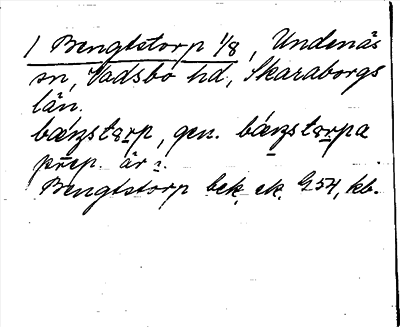 1 Bengtstorp 1/8, Undenäs
sn, Vadsbo hd, Skaraborgs
län.
bæŋstɷrp, gen. bæŋstɷrpa
prep. är i.
Bengtstorp bek. ek. G54, kb.